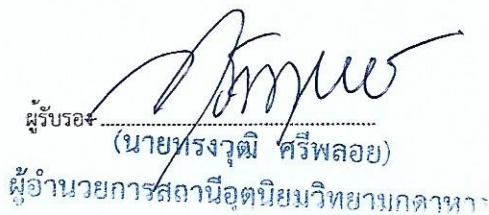 ผู้รับรอง
(นายทรงวุฒิ ศรีพลอย)
ผู้อำนวยการสถานีอุตุนิยมวิทยามุกดาหาร